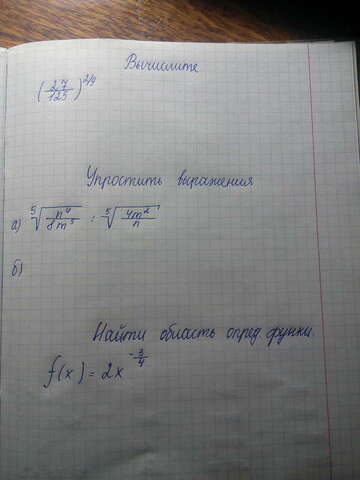 Вычислите
(27/125)^2/9
Упростить выражения
а) ⁵√(n⁴/8m³) : ⁵√(4m²/n)
б)
Найти область опред. функц.
f(x) = 2x^-3/4